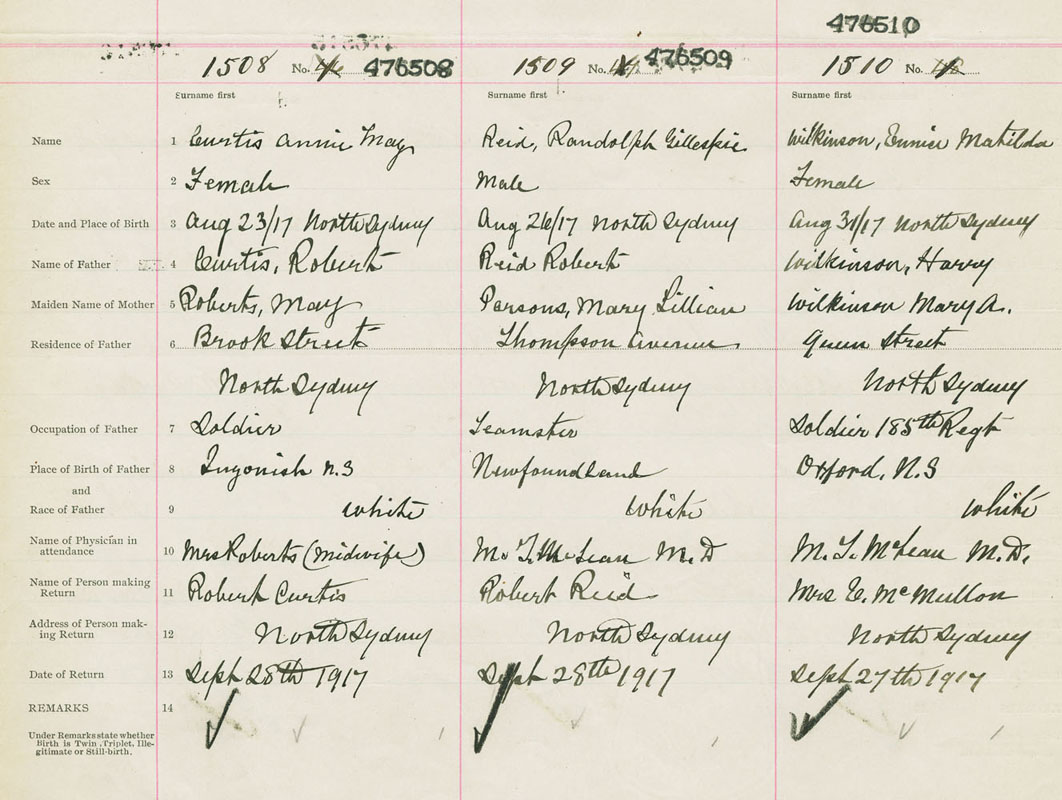 476510
1508 No. 476508 1509 No. 476509 1510 No.
Surname first Surname first Surname first
Name 1 Curtis Annie May Reid, Randolph Gillespie Wilkinson, Eunice Matilda
Sex 2 Female Male Female
Date and Place of Birth 3 Aug 23/17 North Sydney Aug 26/17 North Sydney Aug 31/17 North Sydney
Name of Father 4 Curtis, Robert Reid Robert Wilkinson, Harry
Maiden Name of Mother 5 Roberts, May Persons, Mary Lillian Wilkinson Mary A.
Residence of Father 6 Brook Street Thompson Avenue Queen Street
North Sydney North Sydney North Sydney
Occupation of Father 7 Soldier Teamster Soldier 185th Regt
Place of Birth of Father 8 Ingonish N.S Newfoundland Oxford, N.S
and
Race of Father 9 White White White
Name of Physician in
attendance 10 Mrs Roberts (midwife) M. T. McLean M.D M. T. McLean M.D.
Name of Person making
Return 11 Robert Curtis Robert Reid Mrs E. McMullon
Address of Person mak-
ing Return 12 North Sydney North Sydney North Sydney
Date of Return 13 Sept 28th 1917 Sept 28th 1917 Sept 27th 1917
REMARKS 14
Under Remarks state whether
Birth is Twin, Triplet, Ille-
gitimate or Still-birth.